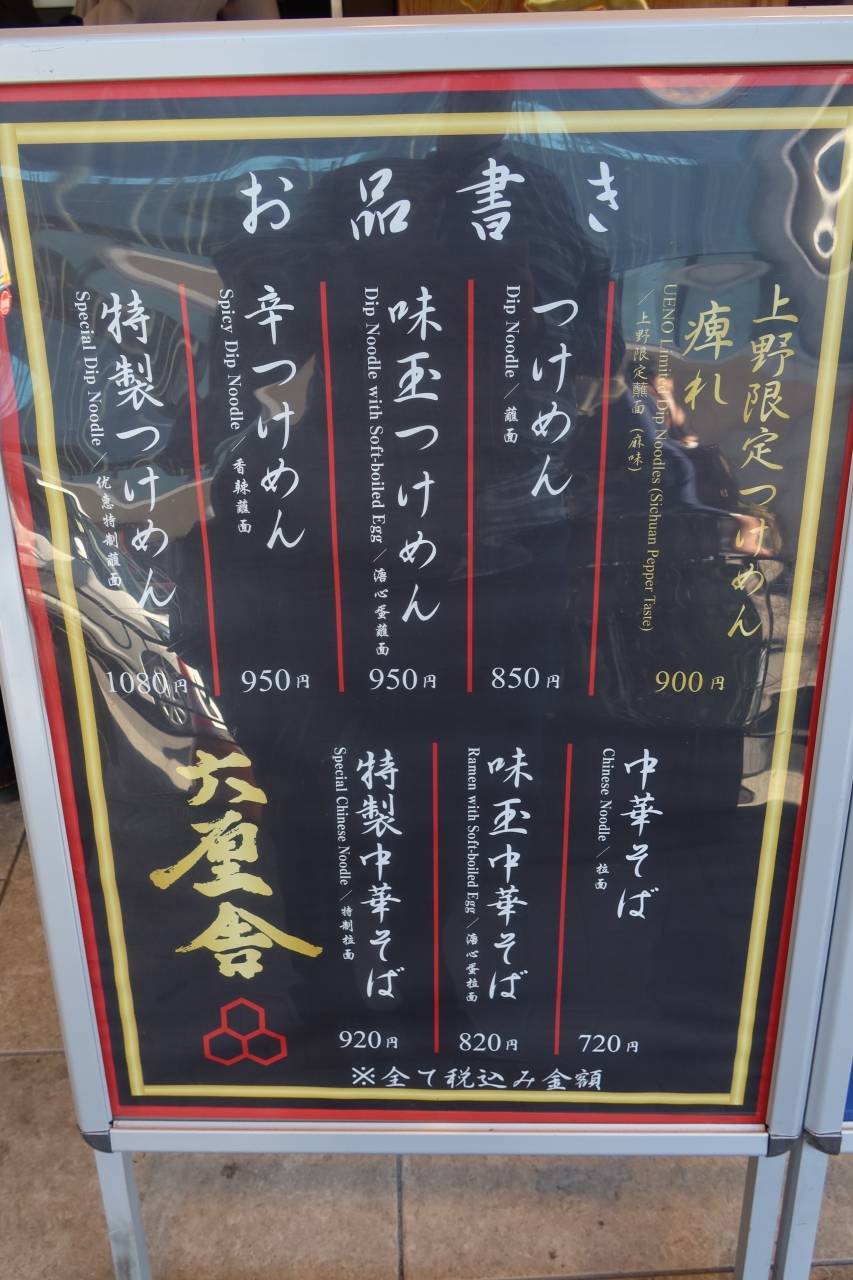 お品書き
上野限定つけめん
痺れ
UENO Limited Dip Noodles (Sichuan Pepper Taste)
／上野限定蘸面（麻味）
900円
つけめん
Dip Noodle／蘸面
850円
味玉つけめん
Dip Noodle with Soft-boiled Egg／溏心蛋蘸面
950円
辛つけめん
Spicy Dip Noodle／香辣蘸面
950円
特製つけめん
Special Dip Noodle／优惠特制蘸面
1080円
中華そば
Chinese Noodle／拉面
720円
味玉中華そば
Ramen with Soft-boiled Egg／溏心蛋拉面
820円
特製中華そば
Special Chinese Noodle／特制拉面
920円
六厘舎
※全て税込み金額